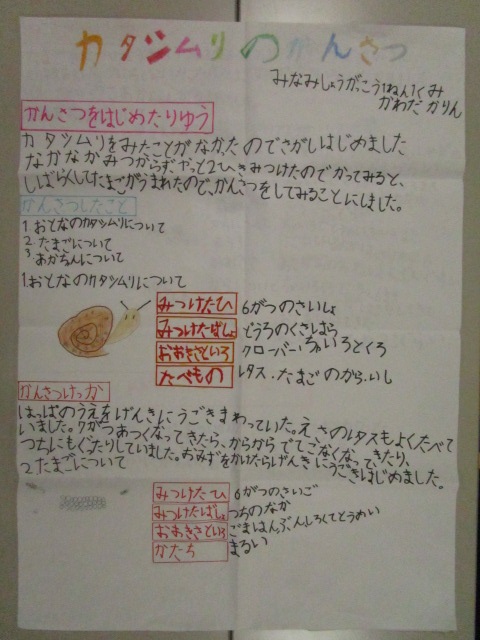 カタツムリのかんさつ
みなみしょうがっこう1ねん1くみ
かわだ かりん
かんさつをはじめたりゆう
カタツムリをみたことがなかったのでさがしはじめました
なかなかみつからず、やっと2ひきみつけたのでかってみると、
しばらくしてたまごがうまれたので、かんさつをしてみることにしました。
かんさつしたこと
1 おとなのカタツムリについて
2 たまごについて
3 あかちんについて
1 おとなのカタツムリについて
みつけたひ 6がつのさいしょ
みつけたばしょ どうろのくさはら
おおきさといろ クローバー、ちゃいろとくろ
たべもの レタス、たまごのから、いし
かんさつけっか
はっぱのうえをげんきにうごきまわっていた。えさのレタスもよくたべて
いました。7がつあつくなってきたら、からからでてこなくなってきたり、
つちにもぐったりしていました。おみずをかけたらげんきにうごきはじめました。
2 たまごについて
みつけたひ 6がつのさいご
みつけたばしょ つちのなか
おおきさといろ ごまはんぶん、しろくてとうめい
かたち まるい